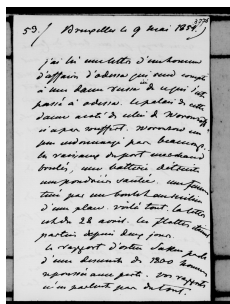 53. Bruxelles le 9 mai 1854.
j'ai lu une lettre d'un homme
d'affaires d'odessa qui rend compte
à une dame russe de ce qui s'est
passé à odessa. le palais de cette
dame à coté de celui de Woronzoff
n'a pas souffert. Woronzoff un
peu endommagé pas beaucoup.
les vaisseaux du port marchand
brulés, une batterie détruite
une poudrière sautée. un
tué par un boulet au milieu
d'une place. voilà tout. la lettre
est du 28 avril. les flottes étaient
parties depuis deux jours.
le rapport d'osten Saken parle
d'une descente de 1800 hommes
repoussée avec perte. vos rapports
n'en parlent pas du tout.